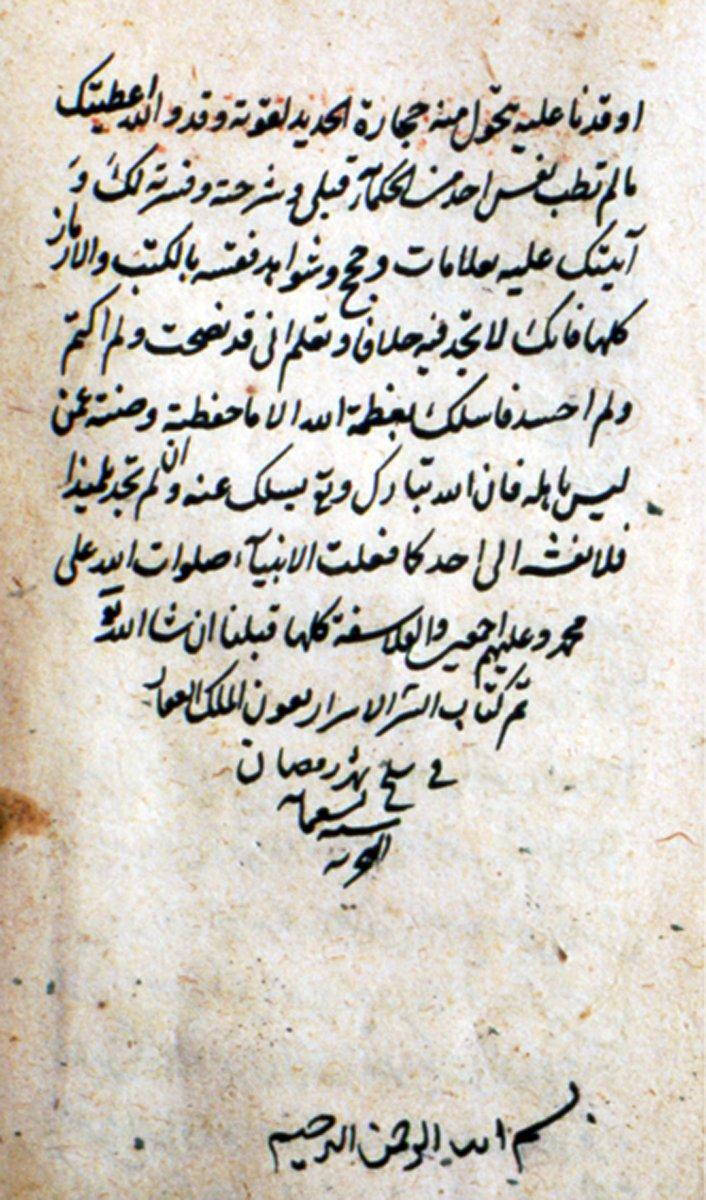 اوقدنا عليه يتحول منه حجارة الحديد لقوته وقد والله اعطيتك
مالم تطب نفس احد من الحكمآء قبلى وشرحته وفسرته لك و
آتيتك عليه بعلامات وحجج وشواهد فقسه بالكتب والارماز
كلها فانك لا تجد فيه خلافا وتعلم انى قد نصحت ولم اكتم
ولم احسد فاسلك بعظمة الله الا ما حفظته وصنته عمن
ليس باهله فان الله تبارك وتع يسلك عنه وان لم تجد تلميذا
فلا تفشه الى احد كما فعلت الانبيآء صلوات الله على
محمد وعليهم اجمعين والفلاسفة كلها قبلنا ان شا الله تع
تم كتاب السر الاسرار بعون الملك
فى سلخ شهر رمضان
تسعمايه
بسم الله الرحمن الرحيم